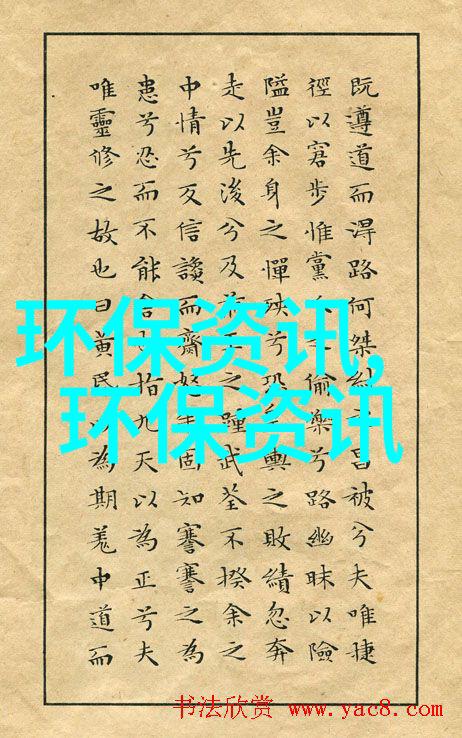 既遵道而淂路何桀昌被兮夫唯捷
徑以窘步惟黨偷樂兮路幽昧以險
隘豈余身之憚殃兮恐輿之敗績忽奔
走以先後兮及之踵武荃不揆余之
中情兮反信讒而齋固知謇謇之為
患兮忍而不能舍指九天以為正兮夫
唯靈修之故也曰黄民為期羌中道而
环保资讯,
环保资讯
书法欣赏 www.yac8.com